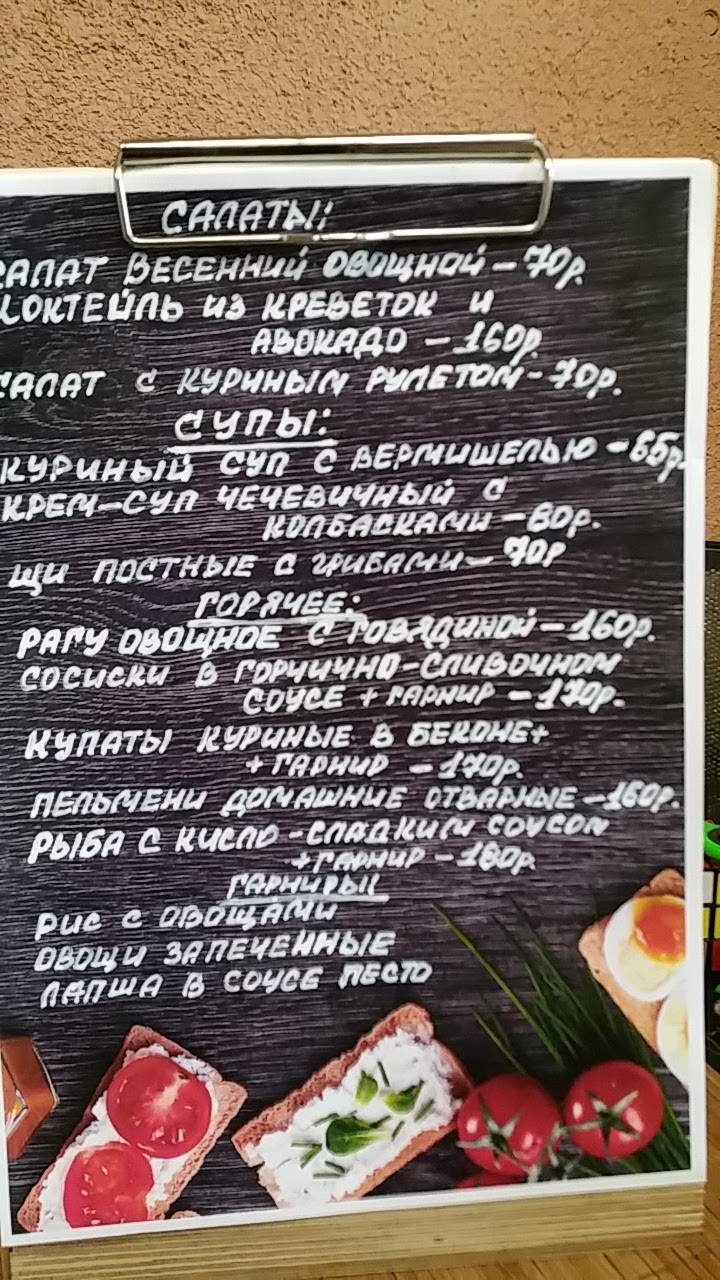 САЛАТЫ:
САЛАТ ВЕСЕННИЙ ОВОЩНОЙ – 70р.
КОКТЕЙЛЬ ИЗ КРЕВЕТОК И
АВОКАДО – 160р.
САЛАТ С КУРИНЫМ РУЛЕТОМ – 70р.
СУПЫ:
КУРИНЫЙ СУП С ВЕРМИШЕЛЬЮ – 65р.
КРЕМ-СУП ЧЕЧЕВИЧНЫЙ С
КОЛБАСКАМИ – 80р.
ЩИ ПОСТНЫЕ С ГРИБАМИ – 70р
ГОРЯЧЕЕ:
РАГУ ОВОЩНОЕ С ГОВЯДИНОЙ – 160р.
СОСИСКИ В ГОРЧИЧНО-СЛИВОЧНОМ
СОУСЕ + ГАРНИР – 170р.
КУПАТЫ КУРИНЫЕ В БЕКОНЕ+
+ ГАРНИР – 170р.
ПЕЛЬМЕНИ ДОМАШНИЕ ОТВАРНЫЕ – 160р.
РЫБА С КИСЛО-СЛАДКИМ СОУСОМ
+ГАРНИР – 180р
ГАРНИРЫ:
РИС С ОВОЩАМИ
ОВОЩИ ЗАПЕЧЕННЫЕ
ЛАПША В СОУСЕ ПЕСТО